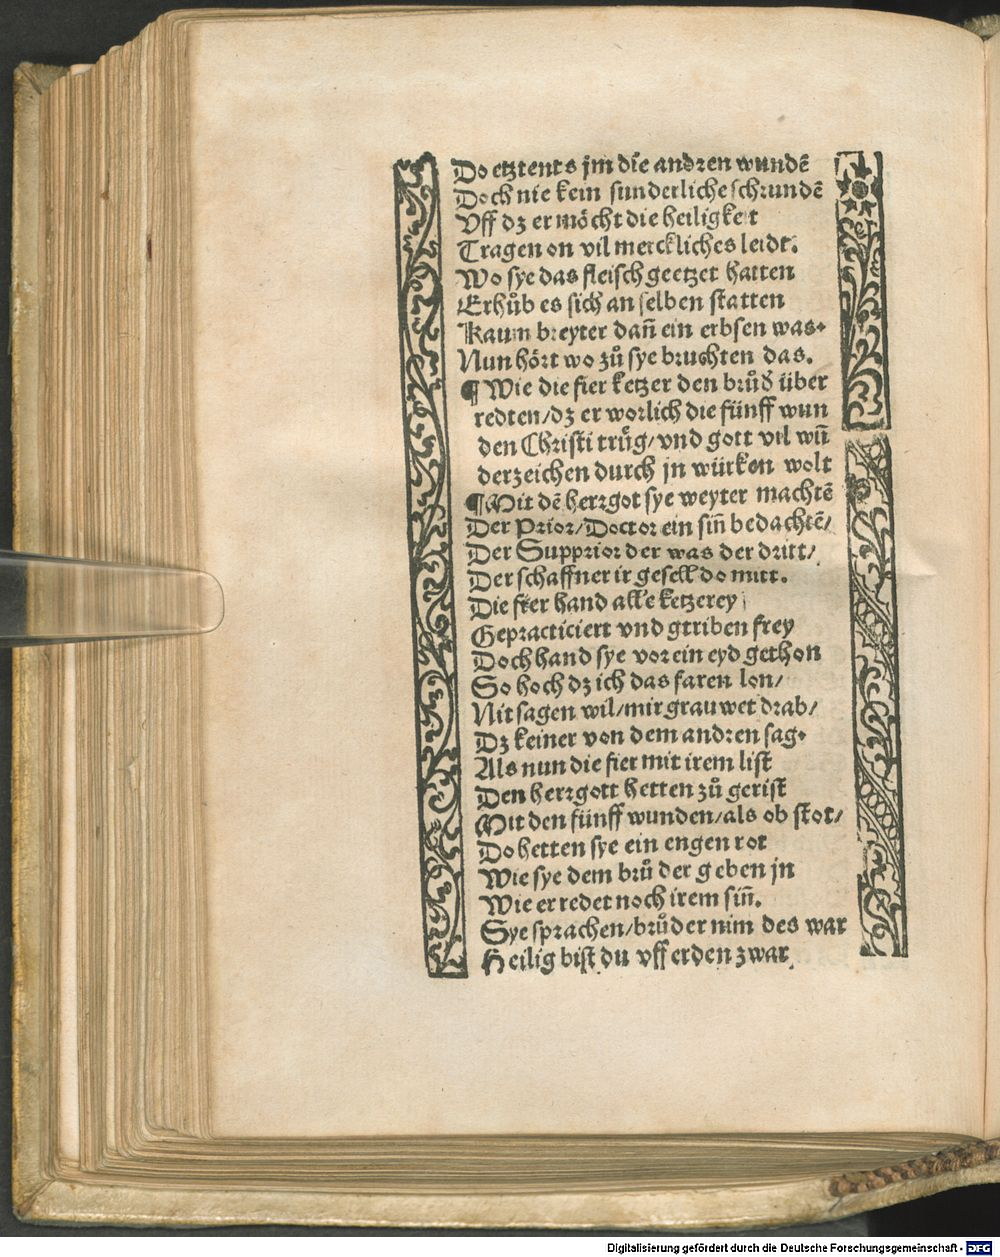 Do etztents jm die andren wundē
Doch nie kein sunderliche schrundē
Vff dz er möcht die heiligkeit
Tragen on vil merckliches leidt.
Wo sye das fleisch geetzet hatten
Erhůb es sich an selben statten
Kaum breyter dañ ein erbsen was.
Nun hört wo zů sye bruchten das.
¶ Wie die fier ketzer den brůd über
redten/dz er worlich die fünff wun
den Christi trůg/vnd gott vil wū
derzeichen durch jn würken wolt
¶Mit dē herrgot sye weyter machtē
Der Prior/Doctor ein siñ bedachtē/
Der Supprior der was der dritt/
Der schaffner ir gesell do mitt.
Die fier hand alle ketzerey
Gepracticiert vnd gtriben frey
Doch hand sye vor ein eyd gethon
So hoch dz ich das faren lon/
Nit sagen wil/mir grauwet drab/
Dz keiner von dem andren sag.
Als nun die fier mit irem list
Den herrgott hetten zů gerist
Mit den fünff wunden/als ob stot/
Do hetten sye ein engen rot
Wie sye dem brůder geben jn
Wie er redet noch irem siñ.
Sye sprachen/brůder nim des war
Heilig bist du vff erden zwar
Digitalisierung gefördert durch die Deutsche Forschungsgemeinschaft - DFG